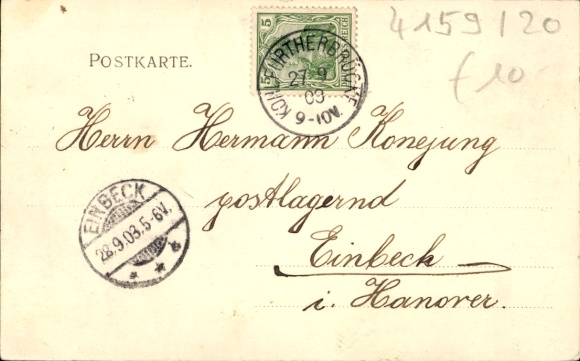 4159/20
f 10
POSTKARTE.
5
REICH
KOHLFURTHERBRÜCKE
27 9
03
9-10V.
Herrn Hermann Konejung
postlagernd
Einbeck
i. Hanover.
EINBECK
28.9.03.5-6V.